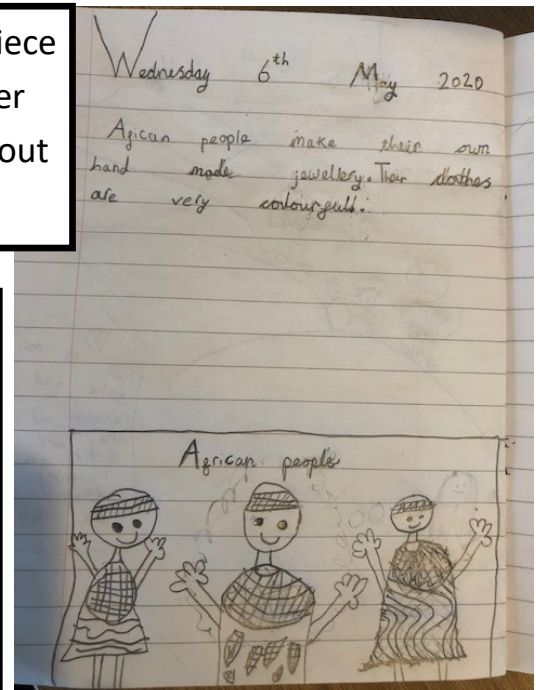 iece
er
out
Wednesday 6th May 2020
African people make their own
hand made jewellery. Their clothes
are very colourfull.
African people